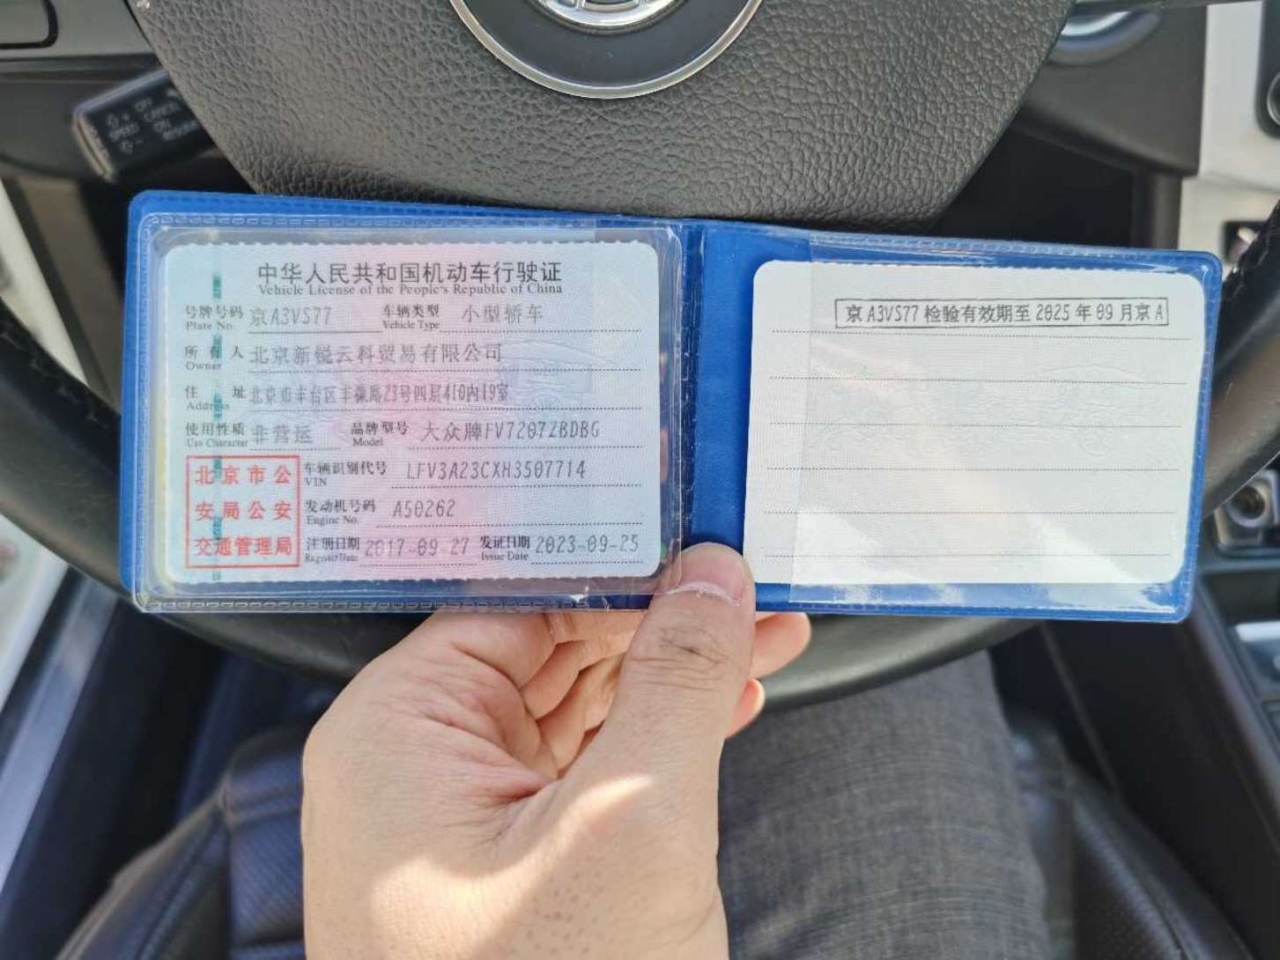 中华人民共和国机动车行驶证
Vehicle License of the People's Republic of China
号牌号码 京A3VS77 车辆类型 小型轿车
Plate No. Vehicle Type
所有人 北京新锐云科贸易有限公司
Owner
住址 北京市丰台区丰徽路23号四层410内19室
Address
使用性质 非营运 品牌型号 大众牌FV7207ZBDBG
Use Character Model
北京市公安局公安交通管理局
车辆识别代号 LFV3A23CXH3507714
VIN
发动机号码 A50262
Engine No.
注册日期 2017-09-27 发证日期 2023-09-25
Register Date Issue Date
京A3VS77 检验有效期至 2025 年 09 月京 A
SPEED
CANCEL
OFF
ON